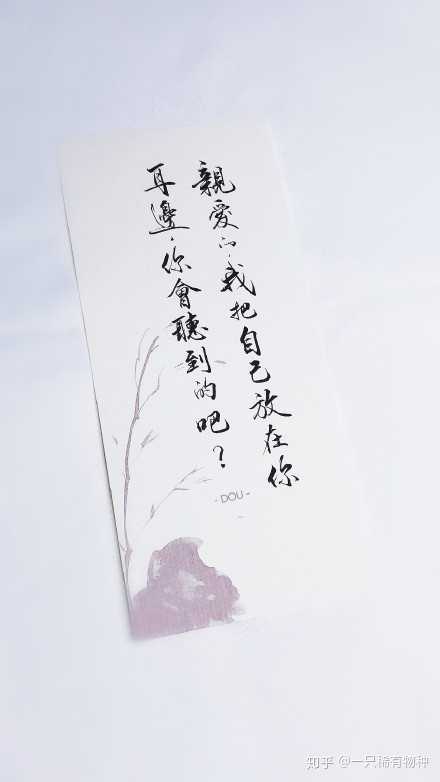 親愛的，我把自己放在你
耳邊，你會聽到的吧？
-DOU-
知乎 @一只稀有物种